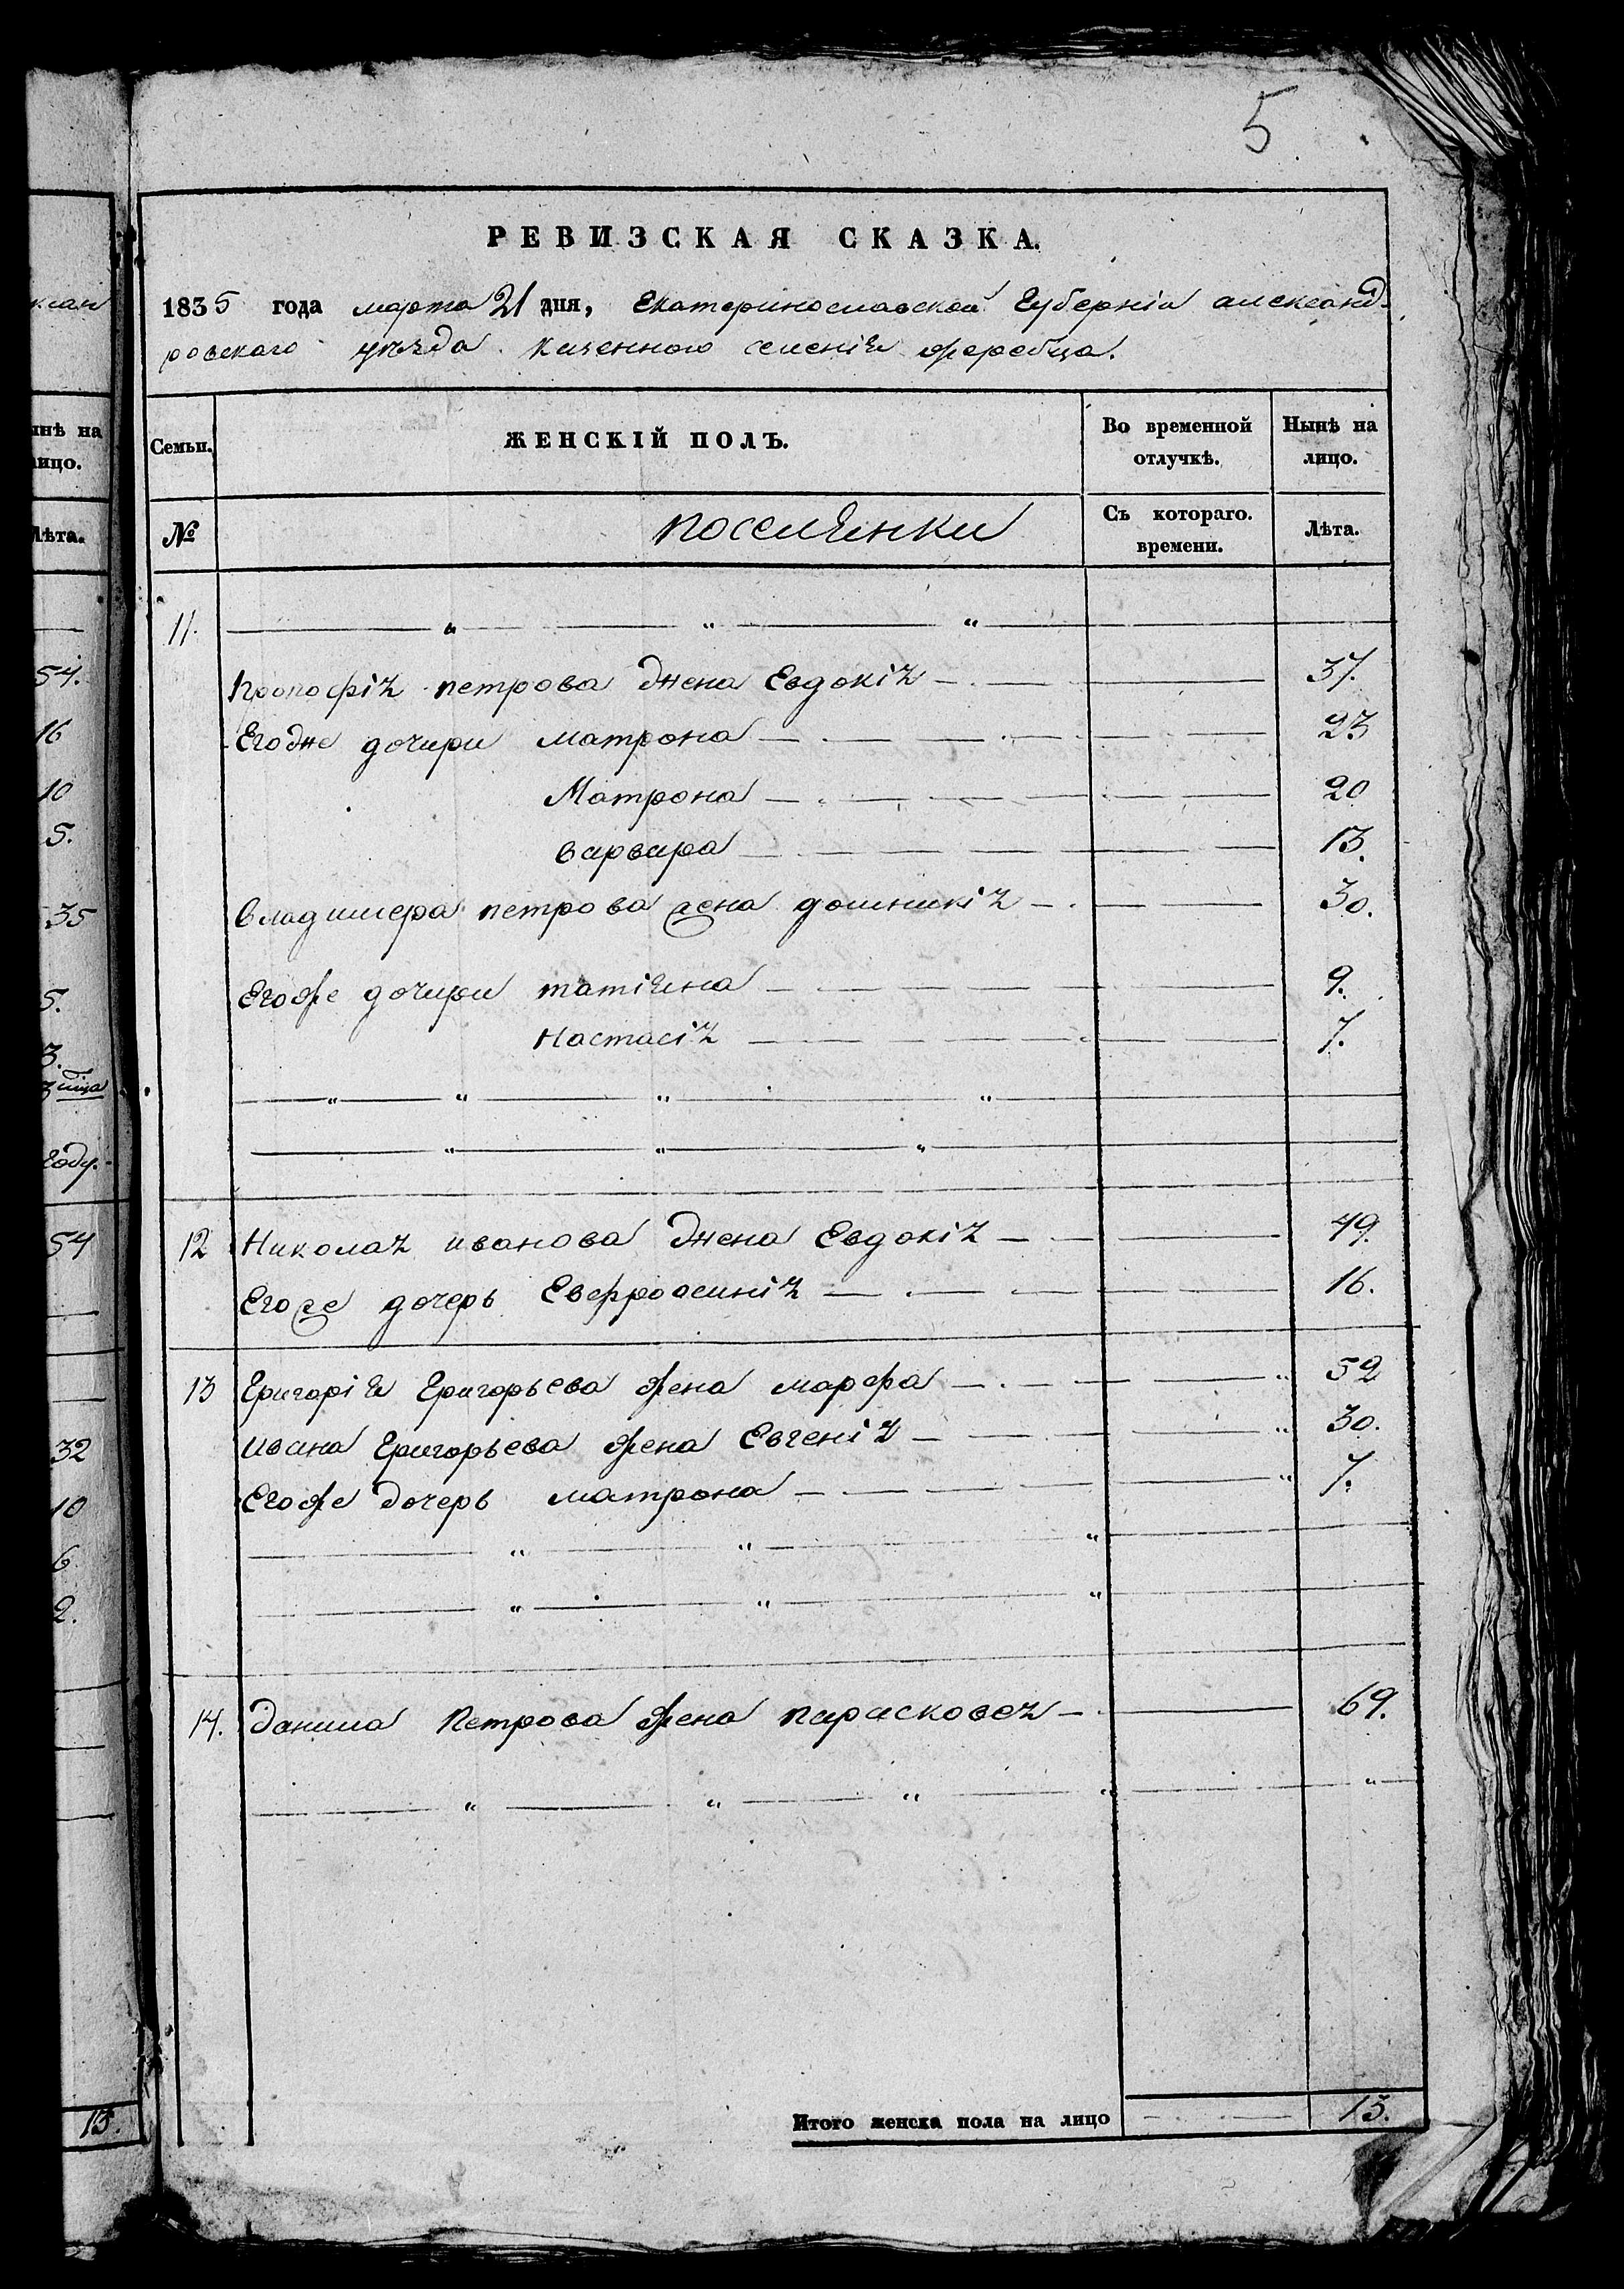 ксан
инѣ на
лицо.
Лѣта.
54.
16
10
5.
35
5.
3.
году.
54
32
10
6.
2.
13.
5
РЕВИЗСКАЯ СКАЗКА.
1835 года марта 21 дня, Екатеринославской Губерніи александ-
ровскаго уѣзда казенного селенія жеребца.
Семьи. ЖЕНСКІЙ ПОЛЪ. Во временной отлучкѣ. Нынѣ на лицо.
№ поселянки Съ котораго. времени. Лѣта.
11.
петрова жена Евдокія 37.
Его же дочири матрона 23
Матрона 20
варвара 13.
владимера петрова жена домникія 30.
Его же дочири татіяна 9.
Настасія 7.
12 Николая иванова жена Евдокія 49.
Его же дочерь Евфросинія 16.
13 Григорія Григорьева жена марфа 52
ивана Григорьева жена Евгенія 30.
Его же дочерь матрона 7.
14. данила Петрова жена парасковея 69.
Итого женска пола на лицо 13.